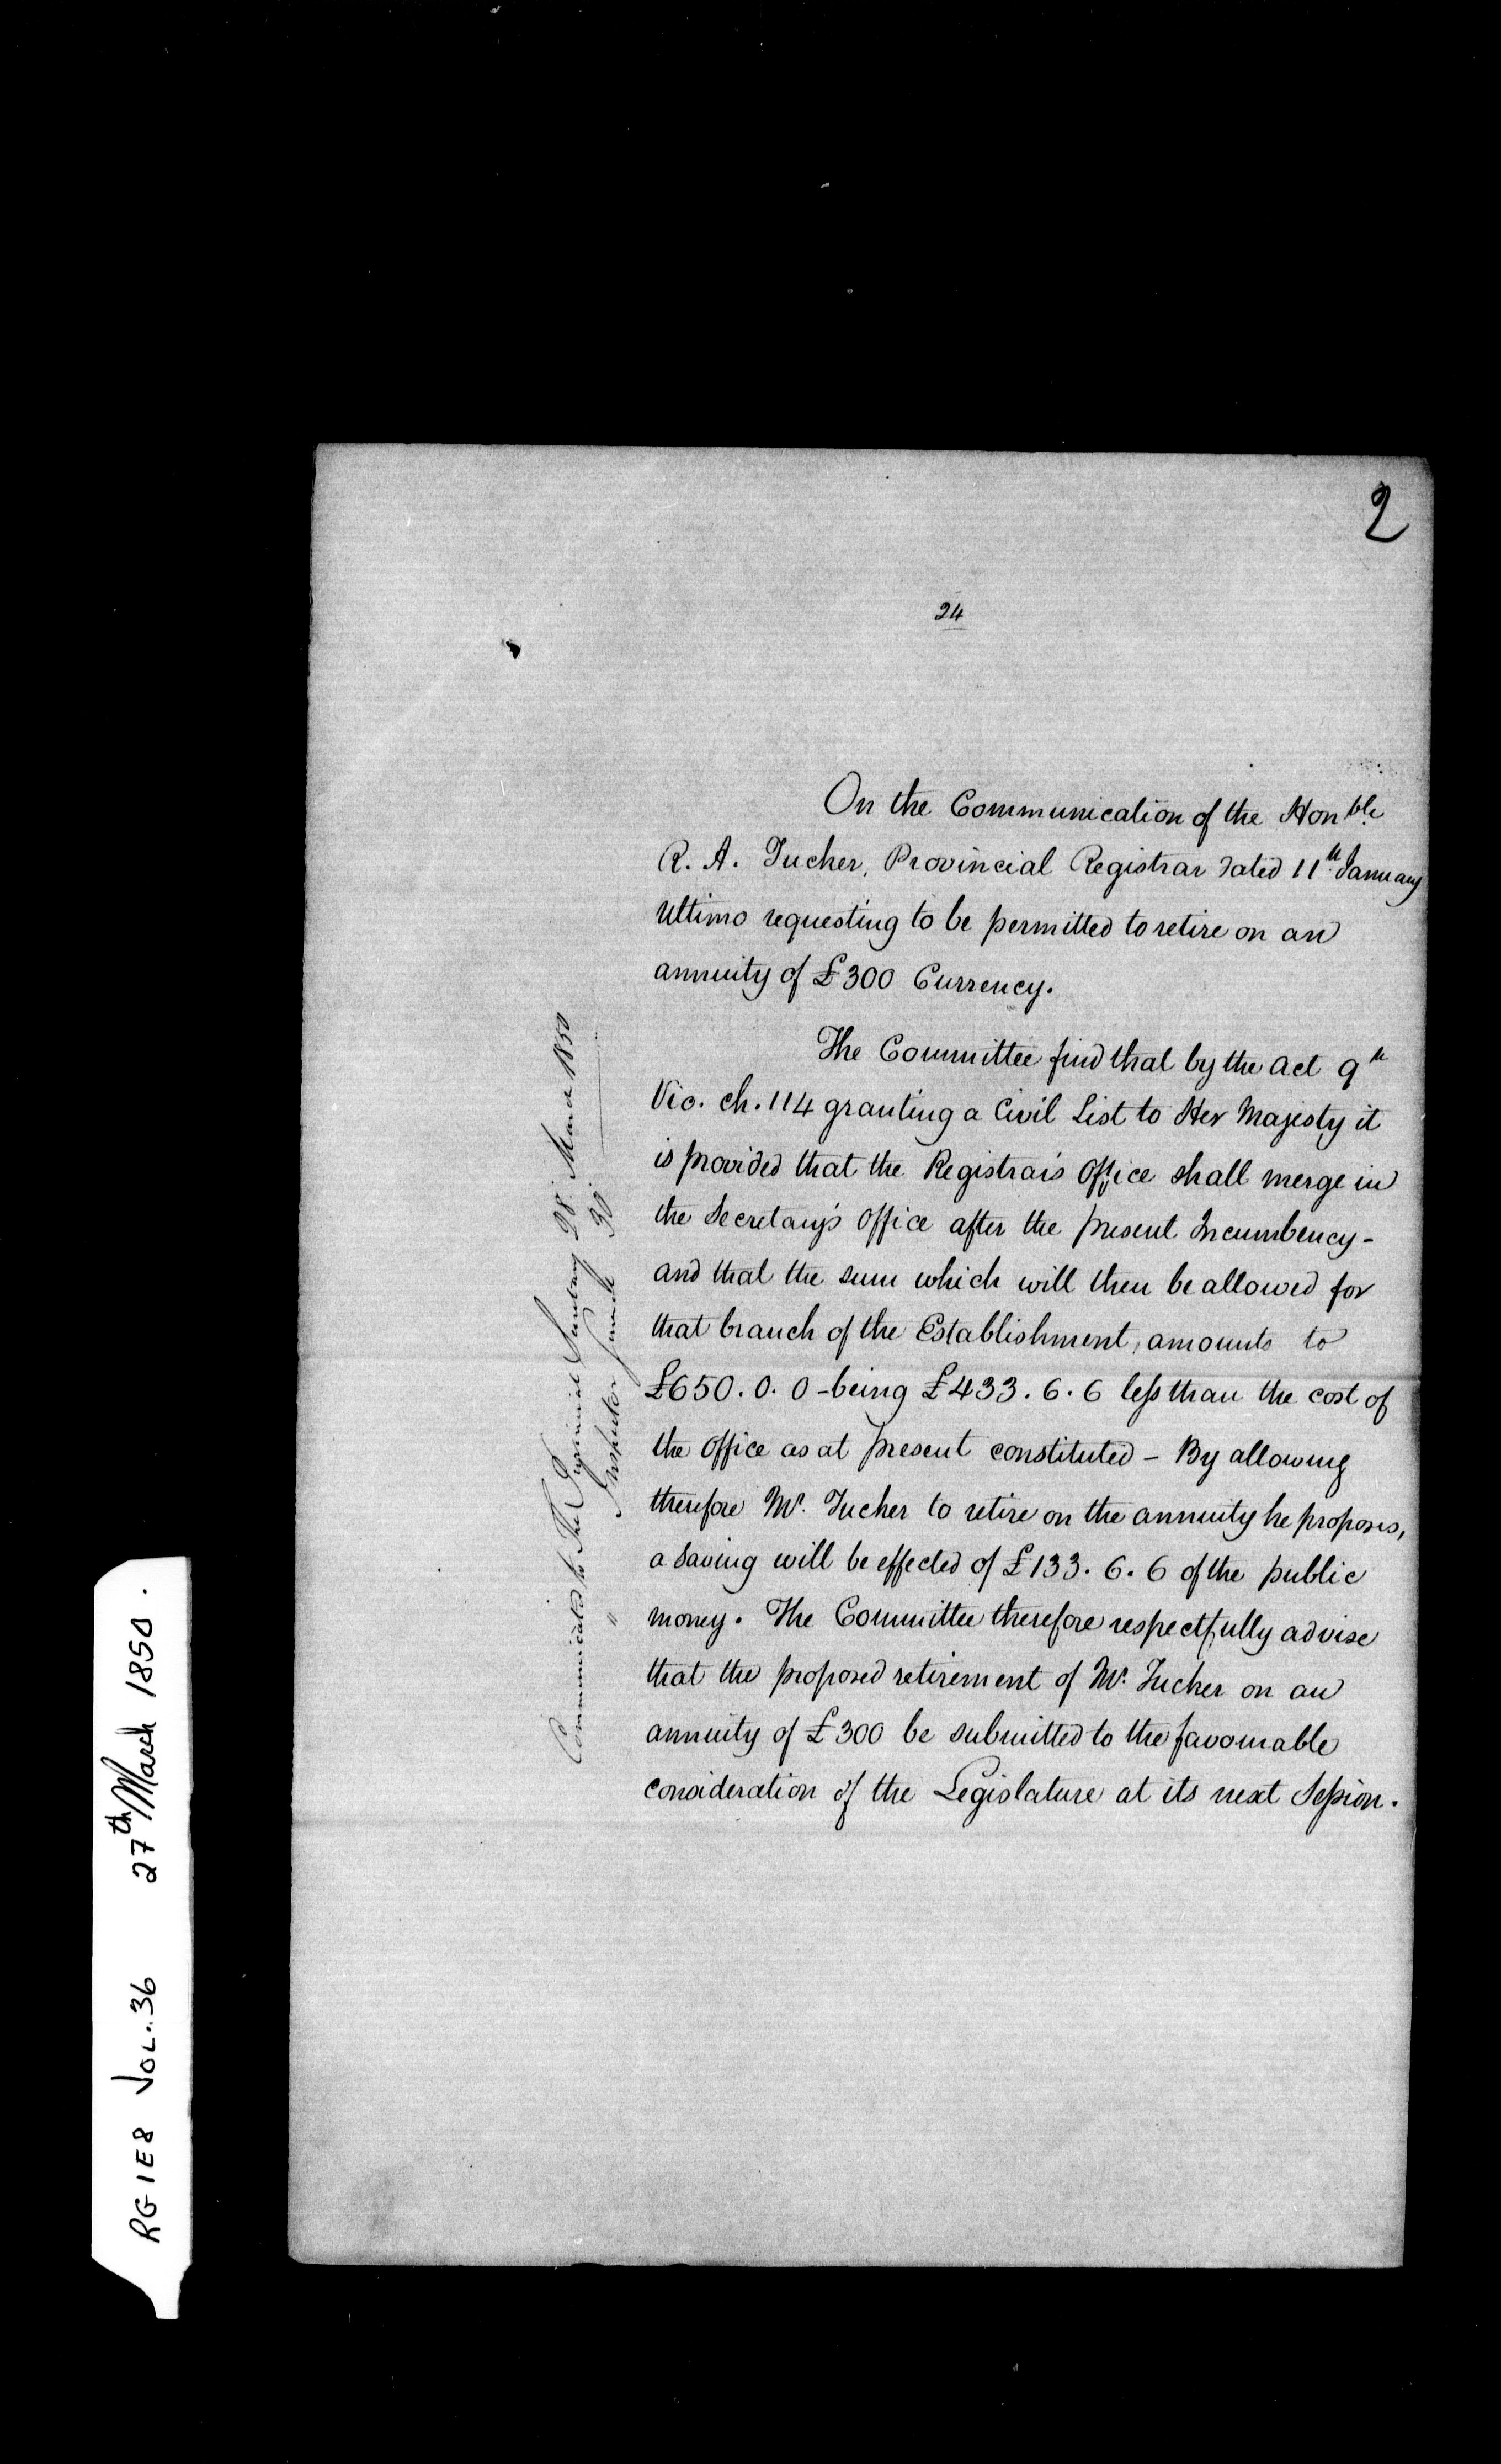 2
24
On the Communication of the Honble
R. A. Tucker, Provincial Registrar dated 11th January
Ultimo requesting to be permitted to retire on an
annuity of £300 Currency.
The Committee find that by the Act 9th
Vic. ch. 114 granting a Civil List to Her Majesty it
is provided that the Registrar's Office shall merge in
the Secretary's Office after the present Incumbency -
and that the sum which will then be allowed for
that branch of the Establishment, amounts to
£650. 0. 0 - being £433. 6. 6 less than the cost of
the Office as at present constituted - By allowing
therefore Mr. Tucker to retire on the annuity he proposes,
a saving will be effected of £133. 6. 6 of the public
money. The Committee therefore respectfully advise
that the proposed retirement of Mr. Tucker on an
annuity of £300 be submitted to the favourable
consideration of the Legislature at its next Session.
Communicated to The Provincial Secretary 28 March 1850
" Inspector General 30
RG 1 E8 VOL. 36 27th March 1850.